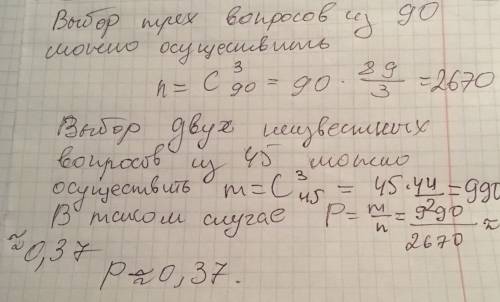 Выбор трех вопросов из 90
можно осуществить
n = C³₉₀ = 90 · 89/3 = 2670
Выбор двух неизвестных
вопросов из 45 можно
осуществить m = C³₄₅ = 45·44/ = 990
В таком случае P = m/n = 990/2670 ≈
≈ 0,37
P ≈ 0,37.